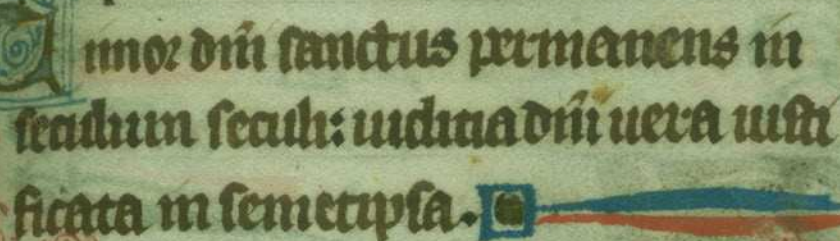 Timor dñi sanctus permanens in
seculum seculi: iudicia dñi uera iusti
ficata in semetipsa.